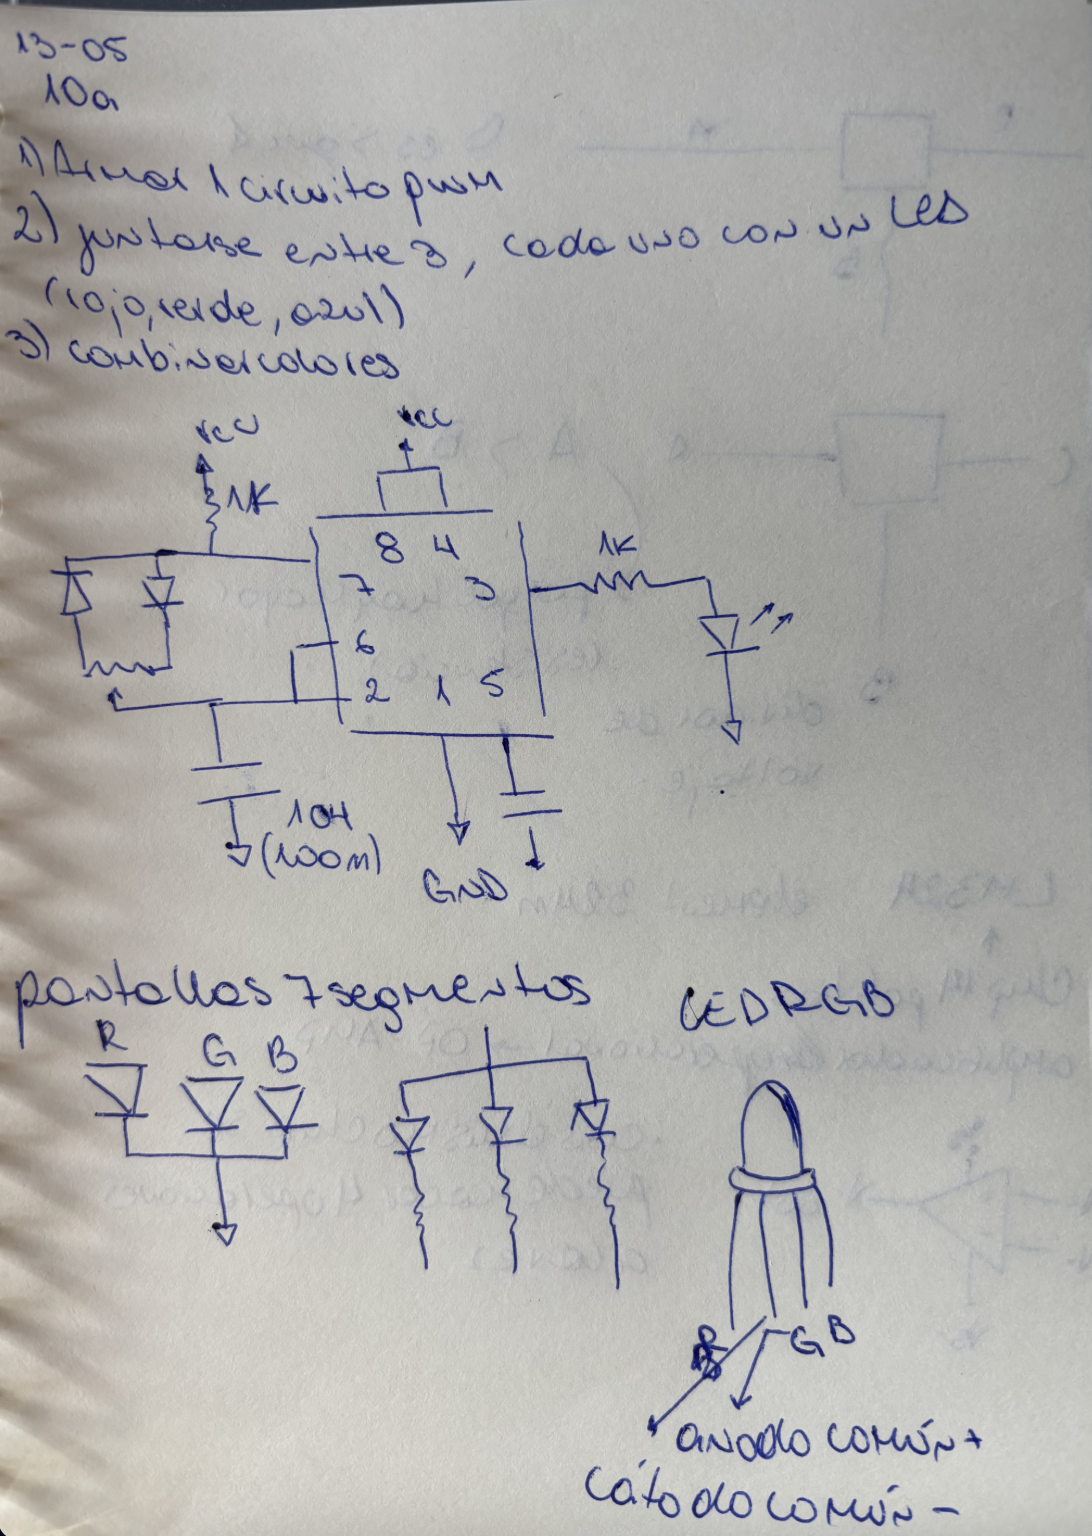 13-05
10a
1) Armar 1 circuito pwm
2) juntarse entre 3, cada uno con un LED
(rojo, verde, azul)
3) combinar colores
vcc
vcc
1K
8 4
7 3
1K
6
2 1 5
104
(100n)
GND
pantallas 7 segmentos
LED RGB
R G B
G B
anodo común +
cátodo común -